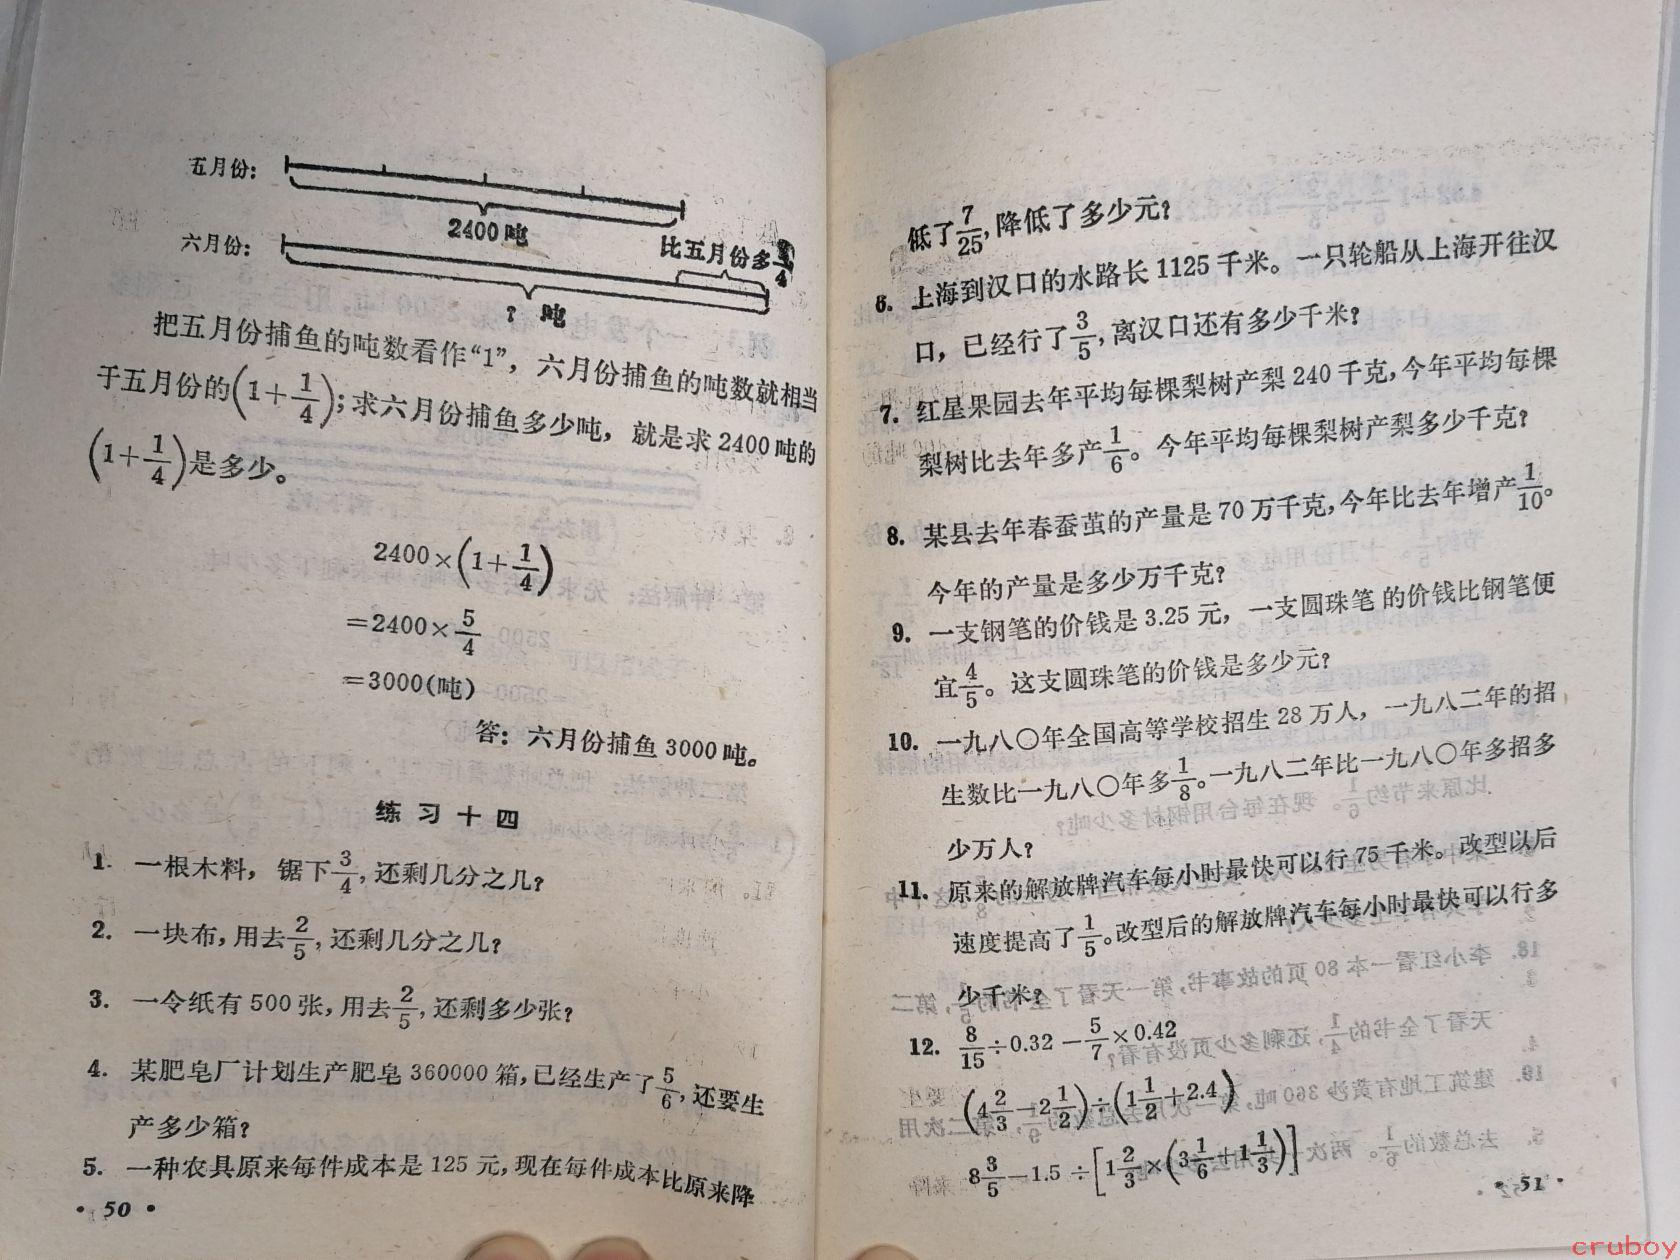 五月份:
2400吨
六月份:
比五月份多1/4
? 吨
把五月份捕鱼的吨数看作“1”，六月份捕鱼的吨数就相当
于五月份的(1+1/4);求六月份捕鱼多少吨，就是求2400吨的
(1+1/4)是多少。
2400×(1+1/4)
=2400×5/4
=3000(吨)
答：六月份捕鱼3000吨。
练习十四
1. 一根木料，锯下3/4,还剩几分之几?
2. 一块布,用去2/5,还剩几分之几?
3. 一令纸有500张,用去2/5,还剩多少张?
4. 某肥皂厂计划生产肥皂360000箱,已经生产了5/6,还要生
产多少箱?
5. 一种农具原来每件成本是125元,现在每件成本比原来降
· 50 ·
低了7/25,降低了多少元?
6. 上海到汉口的水路长1125千米。一只轮船从上海开往汉
口，已经行了3/5,离汉口还有多少千米?
7. 红星果园去年平均每棵梨树产梨240千克,今年平均每棵
梨树比去年多产1/6。今年平均每棵梨树产梨多少千克?
8. 某县去年春蚕茧的产量是70万千克,今年比去年增产1/10。
今年的产量是多少万千克?
9. 一支钢笔的价钱是3.25元，一支圆珠笔的价钱比钢笔便
宜4/5。这支圆珠笔的价钱是多少元?
10. 一九八〇年全国高等学校招生28万人，一九八二年的招
生数比一九八〇年多1/8。一九八二年比一九八〇年多招多
少万人?
11. 原来的解放牌汽车每小时最快可以行75千米。改型以后
速度提高了1/5。改型后的解放牌汽车每小时最快可以行多
少千米?
12. 8/15÷0.32－5/7×0.42
(4 2/3－2 1/2)÷(1 1/2+2.4)
8 3/5－1.5÷[1 2/3×(3 1/6+1 1/3)]
· 51 ·
cruboy